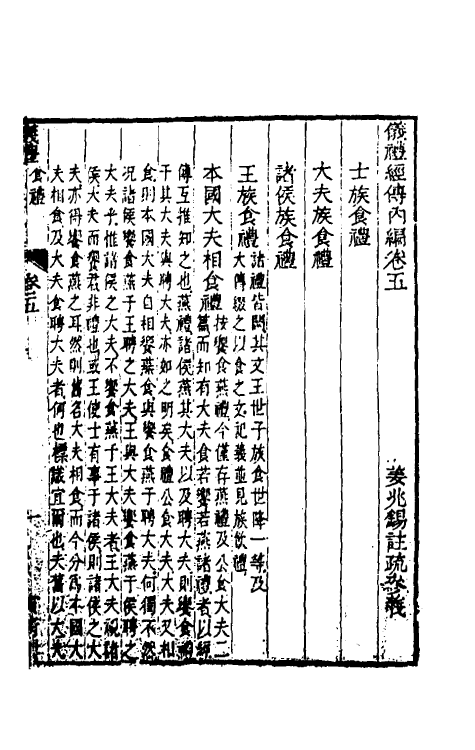 儀禮經傳內編卷五
姜兆錫註疏參義
士族食禮
大夫族食禮
諸侯族食禮
王族食禮
諸禮皆闕其文王世子族食世降一等及
大傳綴之以食之文記義並見族飲禮
本國大夫相食禮
按饗食燕禮今僅存燕禮及公食大夫二
篇而知有大夫食若饗若燕諸禮者以經
傳互推知之也燕禮諸侯燕其大夫以及聘大夫則饗食禮
于其大夫與聘大夫亦如之明矣食禮公食大夫大夫又相
食則本國大夫自相饗燕食與饗食燕于聘大夫何獨不然
况諸侯饗食燕于王聘之大夫王與大夫饗食燕于侯聘之
大夫乎惟諸侯之大夫不饗食燕于王大夫者王大夫視諸
侯大夫而饗君非禮也或王使士有事于諸侯則諸侯之大
夫亦得饗食燕之耳然則舊名大夫相食而今分爲本國大
夫相食及大夫食聘大夫者何也標識宜爾也夫舊以大夫
儀禮
食禮
卷五
一